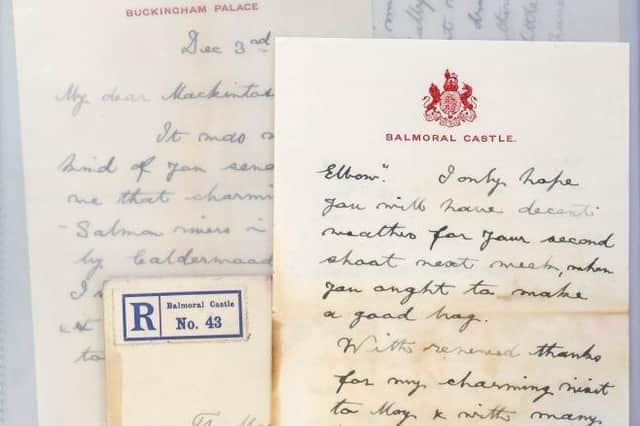 BUCKINGHAM PALACE
Dec 3rd
My dear Mackintos
It was
kind of you send
me that charming
Salmon rivers in
by Calderwood
I
to
R
Balmoral Castle
No. 43
BALMORAL CASTLE.
Elbow". I only hope
you will have decent
weather for your second
shoot next week, when
you ought to make
a good bag.
With renewed thanks
for my charming visit
to Moy & with many